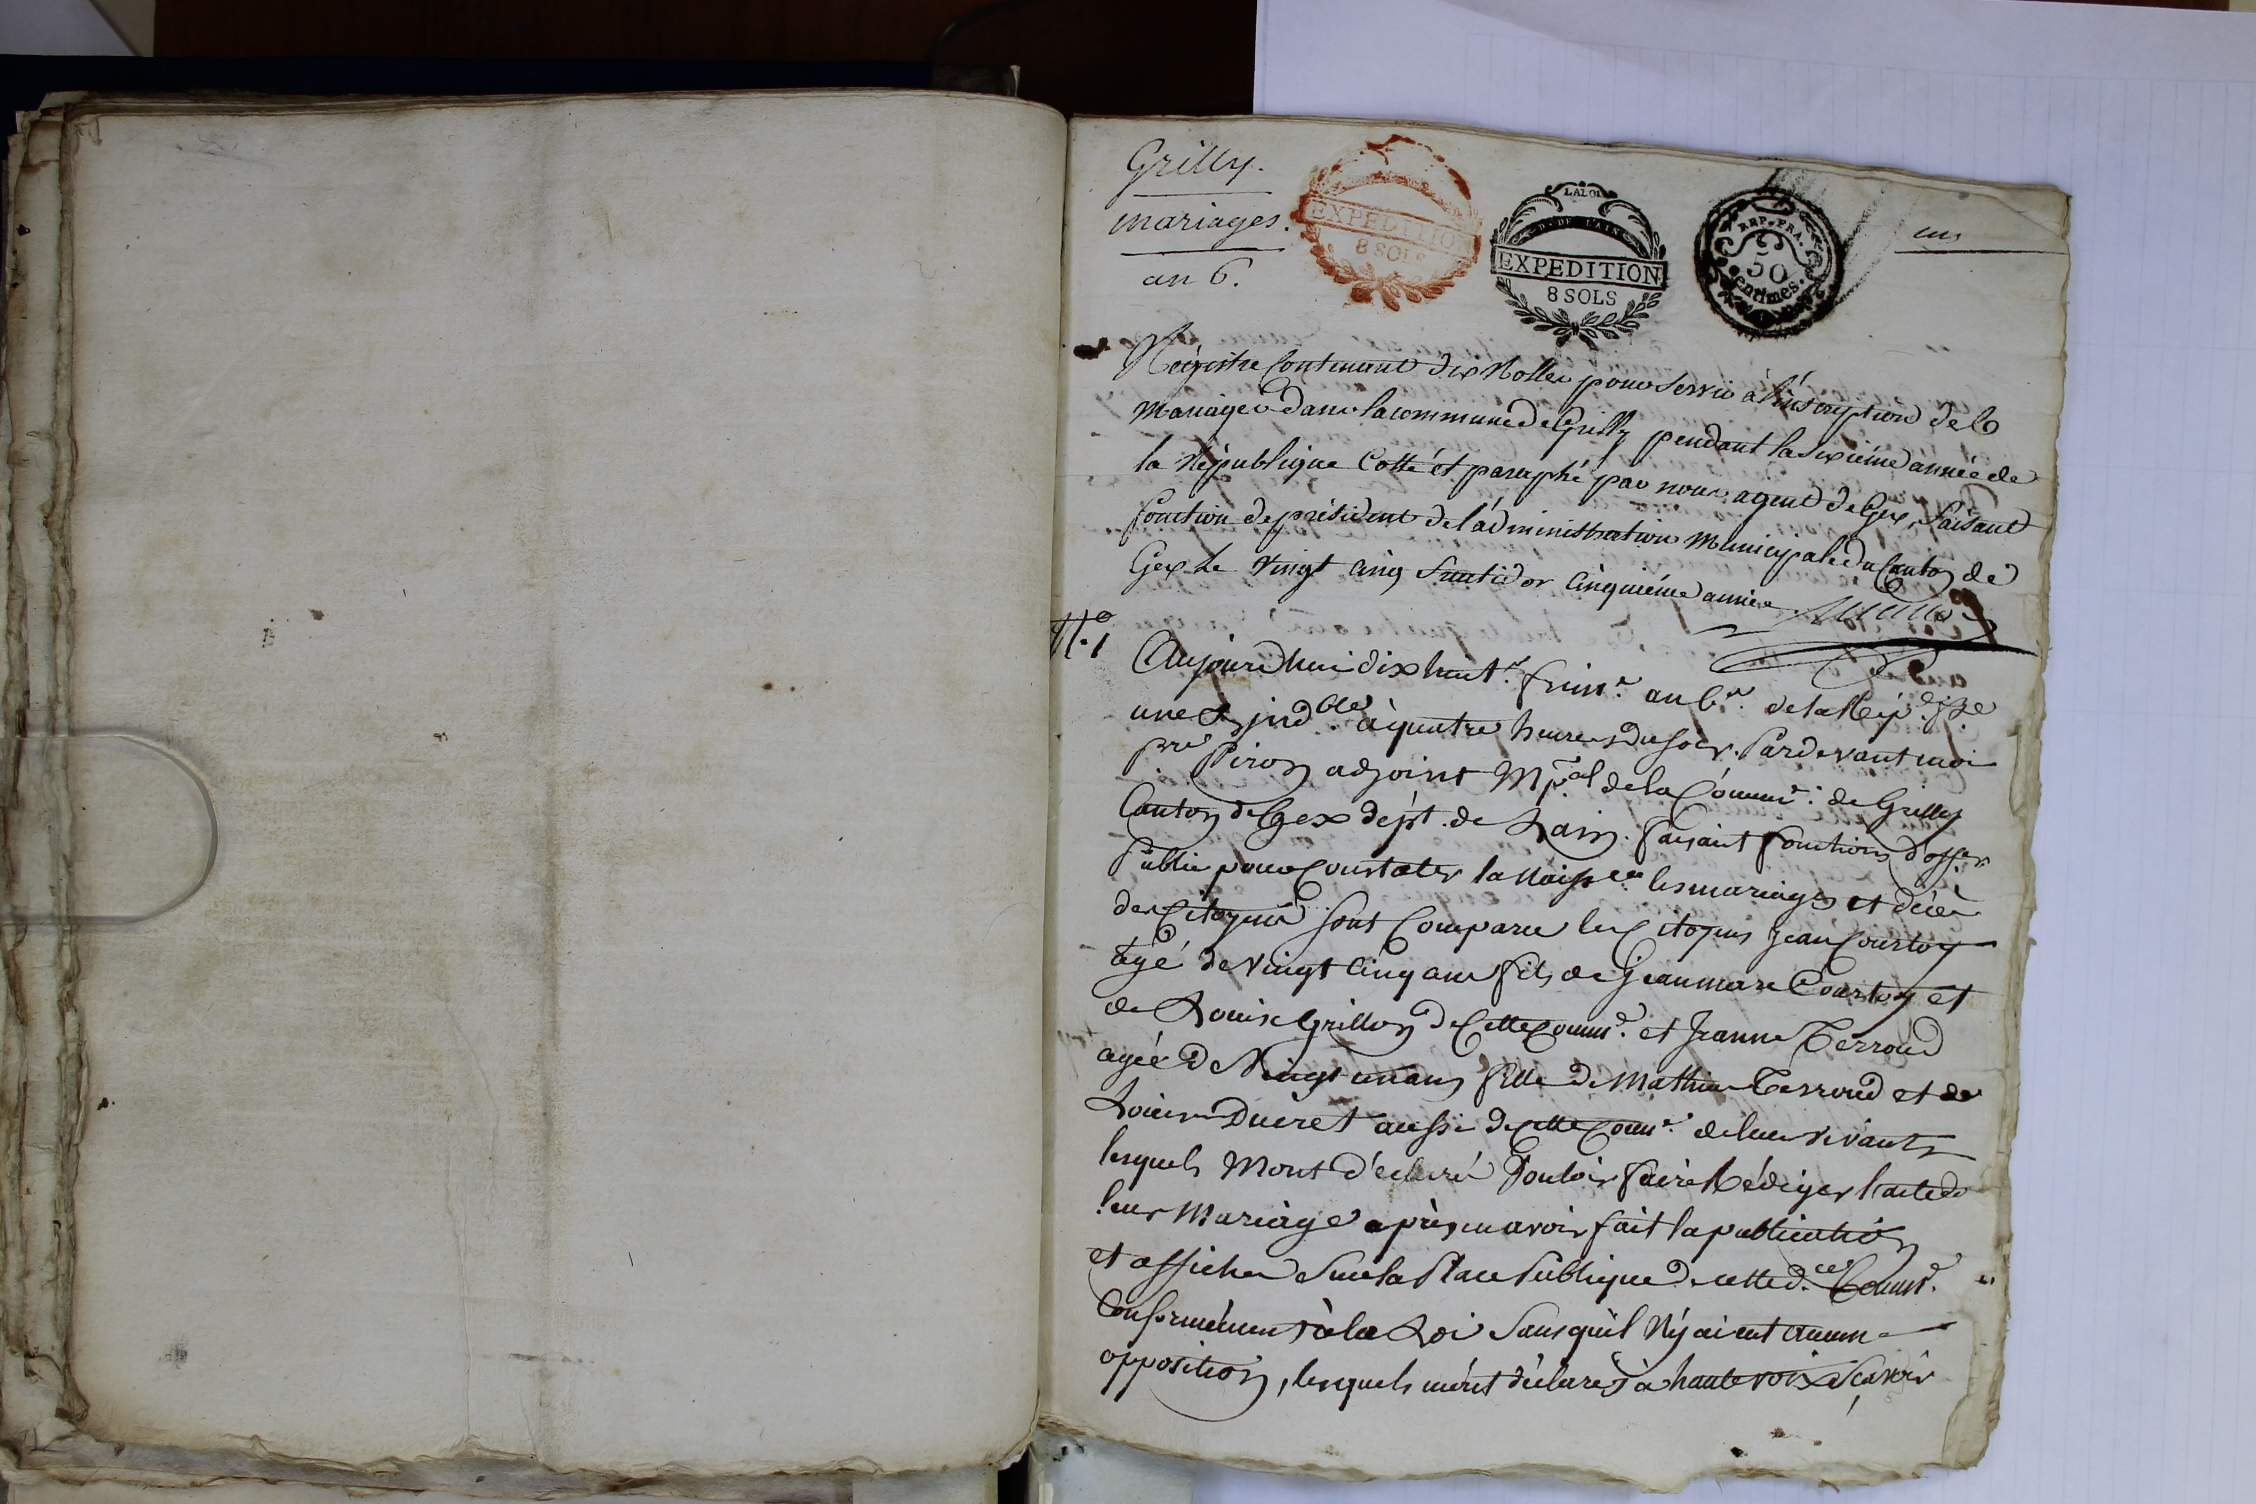 Grilly.
mariages.
an 6.
EXPEDITION
8 SOLS
LA LOI
D. DE L'AIN
EXPEDITION
8 SOLS
REP. FRA.
50
Centimes.
un
Régistre Contenant dix Rolles pour servir à l'inscription des
Mariages dans la commune de Grilly pendant la sixième année de
la République Cotté et paraphé par nous agent de Gex, faisant
fonction de président de l'administration Municipale du Canton de
Gex le vingt cinq fructidor cinquième année
N.o 1
Aujourd'huis dix huit.e frim.e an 6.e de la Rép.e fse
une & jnd.ble à quatre heures du soir. Pardevant moi
p.re Piron adjoint Mp.al de la Comm.e de Grilly
Canton de Gex dépt. de Lain. faisant fonctions d'offer
Public pour Constater la Naiss.ce les mariages et décès
des Citoyens sont Comparu les Citoyens Jean Courtoy
agé de vingt cinq ans fils de Jeanmarc Courtoy et
de Louise Grillon de Cette Comm.e et Jeanne Terroud
agée de Vingt un ans fille de Mathieu Terroud et de
Louise Ducret aussi de Cette Com.e de leur vivants
lesquels Mont déclaré Vouloir faire Rédiger l'acte de
leur Mariage après en avoir fait la publication
et afficher Sur la Place Publique de cette d.te Comm.e
Conformément à la Loi Sans qu'il N'y ai eut aucune
opposition, lesquels mont déclarés à haute voix Scavoir